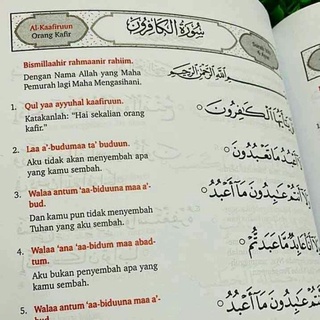 Al-Kaafiruun
Orang Kafir
سُورَةُ الْكَافِرُونَ
Bismillaahir rahmaanir rahiim.
Dengan Nama Allah yang Maha
Pemurah lagi Maha Mengasihani.
بِسْمِ اللَّهِ الرَّحْمَٰنِ الرَّحِيمِ
1. Qul yaa ayyuhal kaafiruun.
Katakanlah: "Hai sekalian orang
kafir."
الْكَٰفِرُونَ
2. Laa a'-budumaa ta' buduun.
Aku tidak akan menyembah apa
yang kamu sembah.
مَا تَعْبُدُونَ
3. Walaa antum 'aa-biduuna maa a'-
bud.
Dan kamu pun tidak menyembah
Tuhan yang aku sembah.
أَنتُمْ عَٰبِدُونَ مَا أَعْبُدُ
4. Walaa 'ana 'aa-bidum maa abad-
tum.
Aku bukan penyembah apa yang
kamu sembah.
أَنَا۠ عَابِدٌ مَّا عَبَدتُّمْ
5. Walaa antum 'aa-biduuna maa a'-
bud.
أَنتُمْ عَٰبِدُونَ مَا أَعْبُدُ